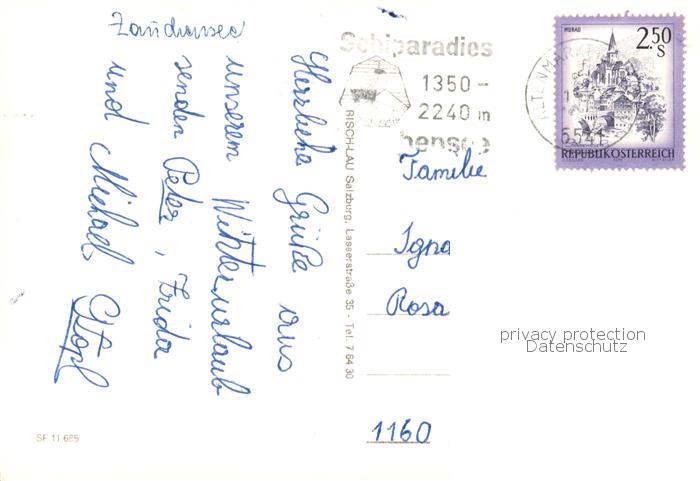 Zauchensee
Herzliche Grüße aus
unserem Winterurlaub
senden Peter, Frida
und Michael
RISCH-LAU Salzburg, Lasserstraße 35 - Tel. 7 64 30
Schiparadies
1350 -
2240 m
hensee
MURAU
2.50
S
REPUBLIK ÖSTERREICH
ALTENMARK
5541
Familie
Igna
Rosa
1160
privacy protection
Datenschutz
SF 11.665